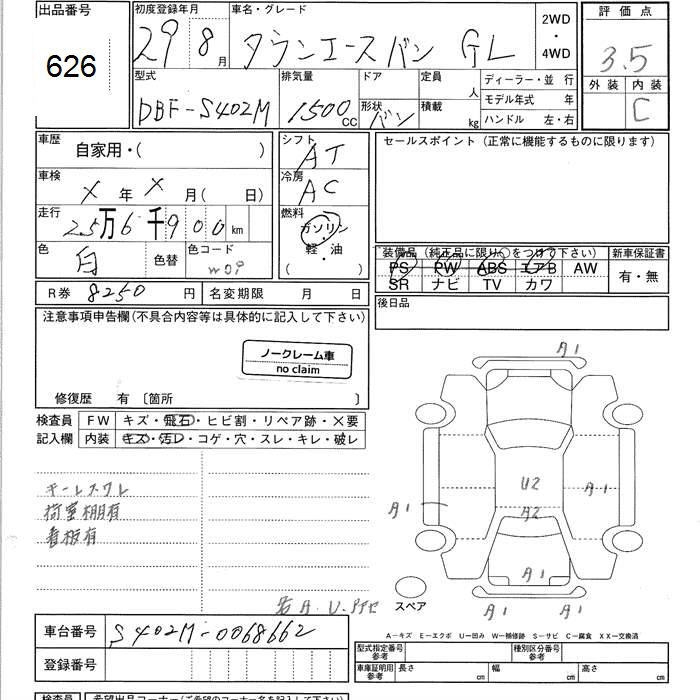 出品番号
626
初度登録年月
29 8月
車名・グレード
タウンエースバン GL
2WD
・
4WD
評価点
3.5
外装 内装
C
型式
DBF-S402M
排気量
1500cc
ドア
形状
バン
定員
人
積載
kg
ディーラー・並 行
モデル年式 年
ハンドル 左・右
車歴
自家用・( )
車検
X年X月( 日)
走行
25万6千900km
色
白
色替
色コード
W09
シフト
AT
冷房
AC
燃料
ガソリン
・
軽・油
( )
セールスポイント(正常に機能するものに限ります)
装備品(純正品に限り○をつけて下さい)
PS PW ABS エアB AW
SR ナビ TV カワ
新車保証書
有・無
後日品
R券 8250円
名変期限 月 日
注意事項申告欄(不具合内容等は具体的に記入して下さい)
ノークレーム車
no claim
修復歴 有 〔箇所 〕
検査員
記入欄
FW キズ・飛石・ヒビ割・リペア跡・×要
内装 キズ・汚レ・コゲ・穴・スレ・キレ・破レ
キーレスワレ
荷室棚有
看板有
A1
U2
A2
A1
A1
A1
A1 A1
スペア
A-キズ E-エクボ U-凹み W-補修跡 S-サビ C-腐食 XX-交換済
車台番号
S402M-0068662
登録番号
型式指定番号
参考
種別区分番号
参考
車庫証明用
参考
長さ cm
幅 cm
高さ cm
検査員
希望出品コーナー(ご希望のコーナー名を記入して下さい)